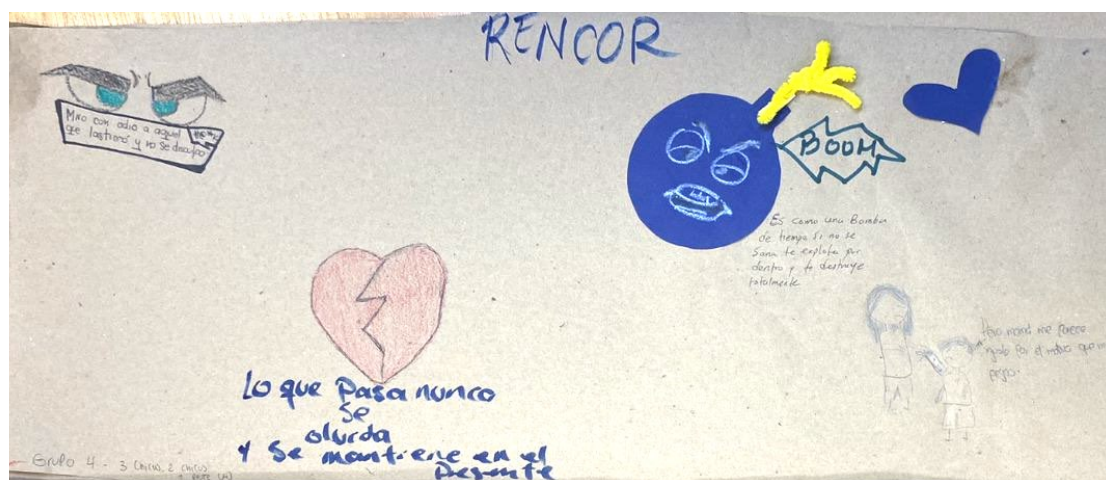 RENCOR
Miro con odio a aquel
que lastimó y no se disculpo
BOOM
Es como una Bomba
de tiempo si no se
Sana te explota por
dentro y te destruye
totalmente
me parece
por el motivo que
Lo que Pasa nunco
se
olvida
Y se mantiene en el
Presente
GRUPO 4 - 3 chicas, 2 chicos